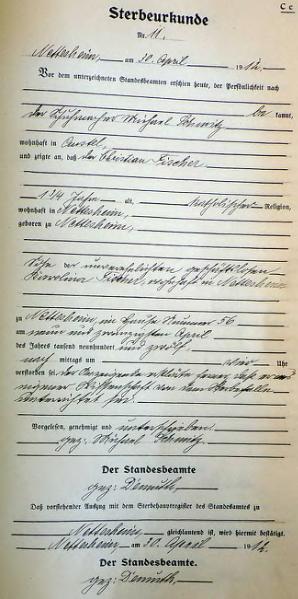 C c.
Sterbeurkunde
Nr. 11.
Nettersheim, am 30. April 1912.
Vor dem unterzeichneten Standesbeamten erschien heute, der Persönlichkeit nach
der Schuhmacher Michael Schmitz be kannt,
wohnhaft in
und zeigte an, daß der Christian Fischer
1 1/4 Jahr alt, katholischer Religion,
wohnhaft in Nettersheim,
geboren zu Nettersheim,
Sohn der unverehelichten geschäftslosen
Karolina Fischer, wohnhaft in Nettersheim
zu Nettersheim, im Hause Nummer 56
am neun und zwanzigsten April
des Jahres tausend neunhundert und zwölf
nach mittags um vier Uhr
verstorben sei. der Anzeigende erklärte ferner, daß er aus
eigener Wissenschaft von dem Sterbefalle
unterrichtet sei.
Vorgelesen, genehmigt und unterschrieben
gez: Michael Schmitz
Der Standesbeamte
gez: Demuth,
Daß vorstehender Auszug mit dem Sterbehauptregister des Standesamtes zu
Nettersheim gleichlautend ist, wird hiermit bestätigt.
Nettersheim, am 30. April 1912.
Der Standesbeamte.
gez: Demuth,